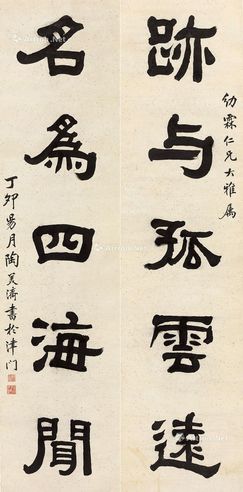 跡与孤雲遠
幼霖仁兄大雅属
名為四海聞
丁卯易月陶美濤書於津门